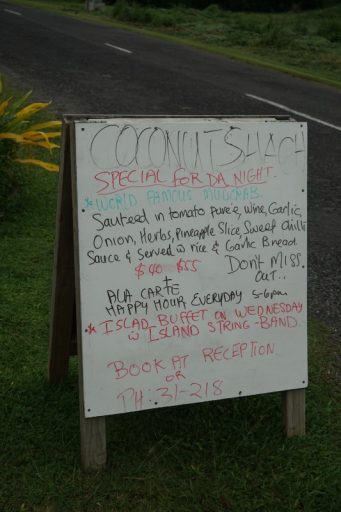 COCONUT SHACK
SPECIAL FOR DA NIGHT.
* WORLD FAMOUS MUDCRAB.
Sauteed in tomato pure'e, wine, Garlic,
Onion, Herbs, Pineapple Slice, Sweet Chilli
Sauce & Served w rice & Garlic Bread.
$40 $55 DON'T MISS
OUT..
+
ALA CARTE
HAPPY HOUR EVERYDAY 5-6pm
* ISLAD BUFFET ON WEDNESDAY
W ISLAND STRING-BAND.
BOOK AT RECEPTION
OR
PH: 31-218